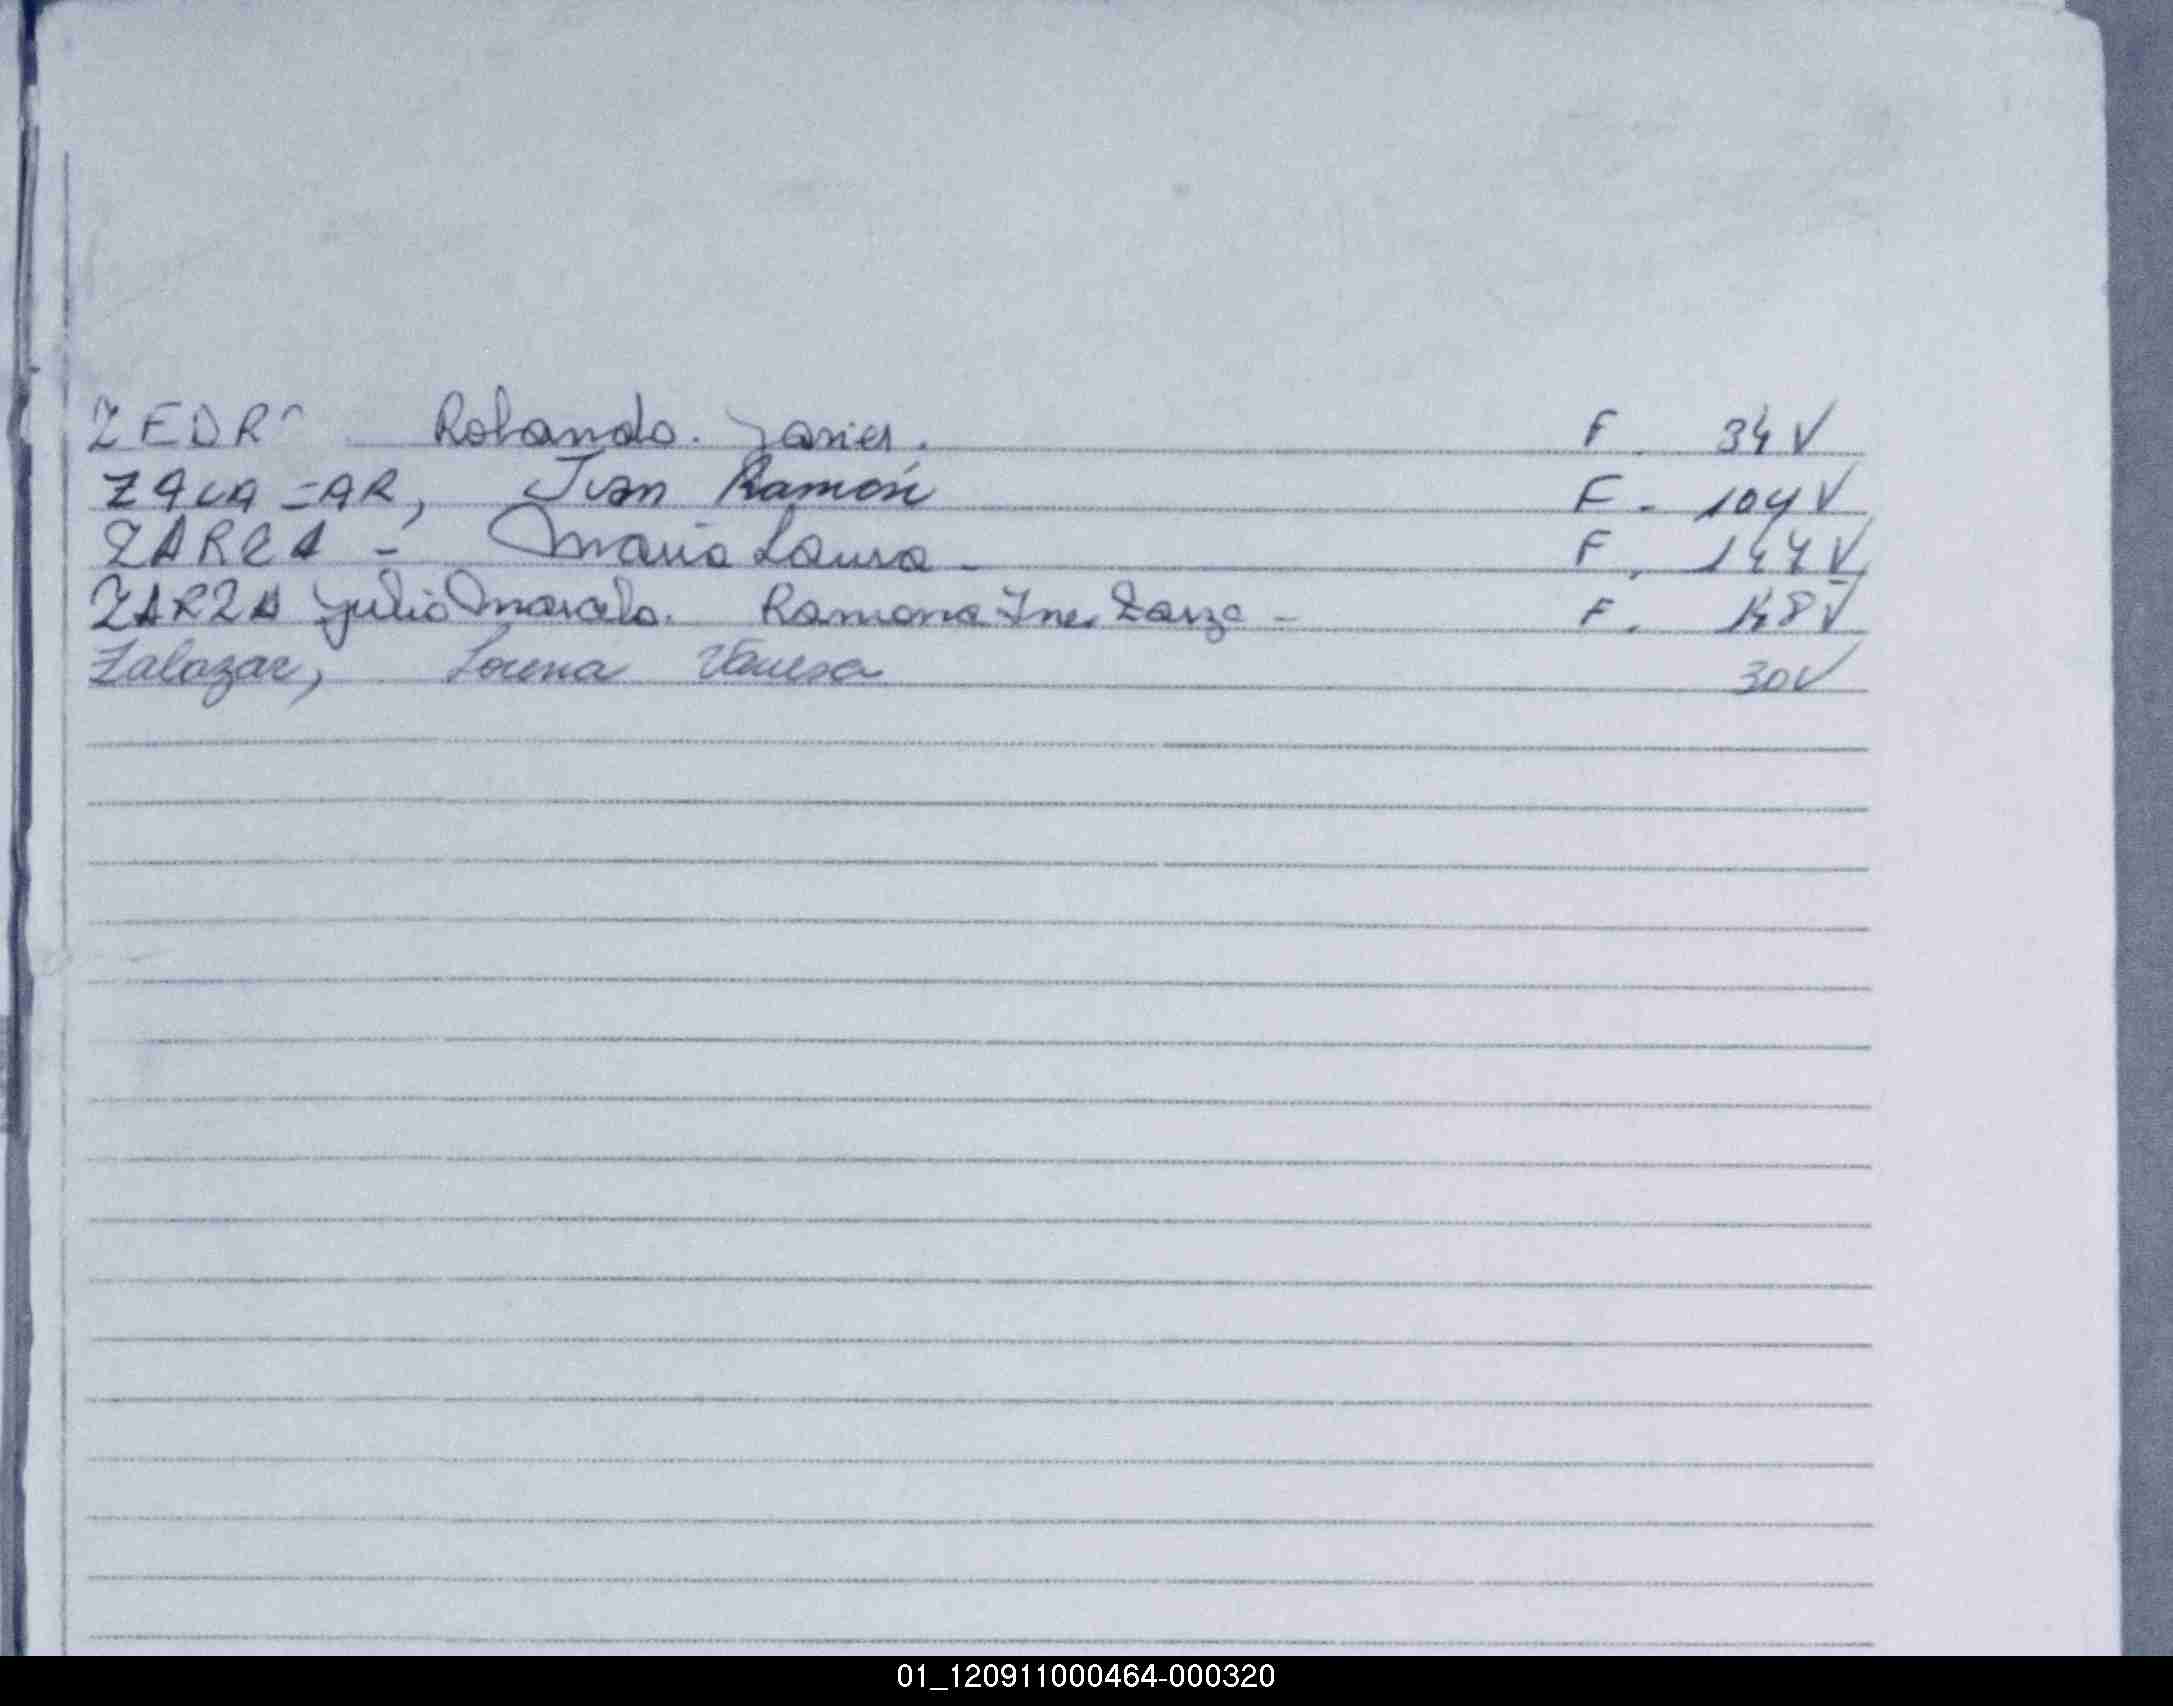 ZEDR Rolando. Javier. F. 34V
ZALAZAR, Juan Ramón F. 104V
ZARZA - Maria Laura - F. 144V
ZARZA Julio Marcelo. Ramona Ines Zarza - F. 148V
Zalazar, Lorena Vanesa 30V
01_120911000464-000320